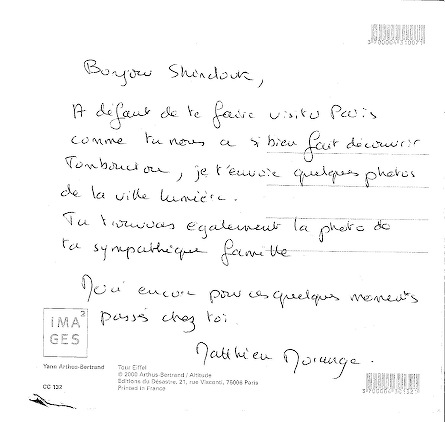 Bonjour Shindouk,
A défaut de te faire visiter Paris
comme tu nous a si bien fait découvrir
Tombouctou, je t'envoie quelques photos
de la ville lumière.
Tu trouveras également la photo de
ta sympathique famille
Merci encore pour ces quelques moments
passés chez toi.
Matthieu Morange.
IMA
GES
Yann Arthus-Bertrand
CC 132
Tour Eiffel
© 2000 Arthus-Bertrand / Altitude
Editions du Désastre, 21, rue Visconti, 75006 Paris
Printed in France